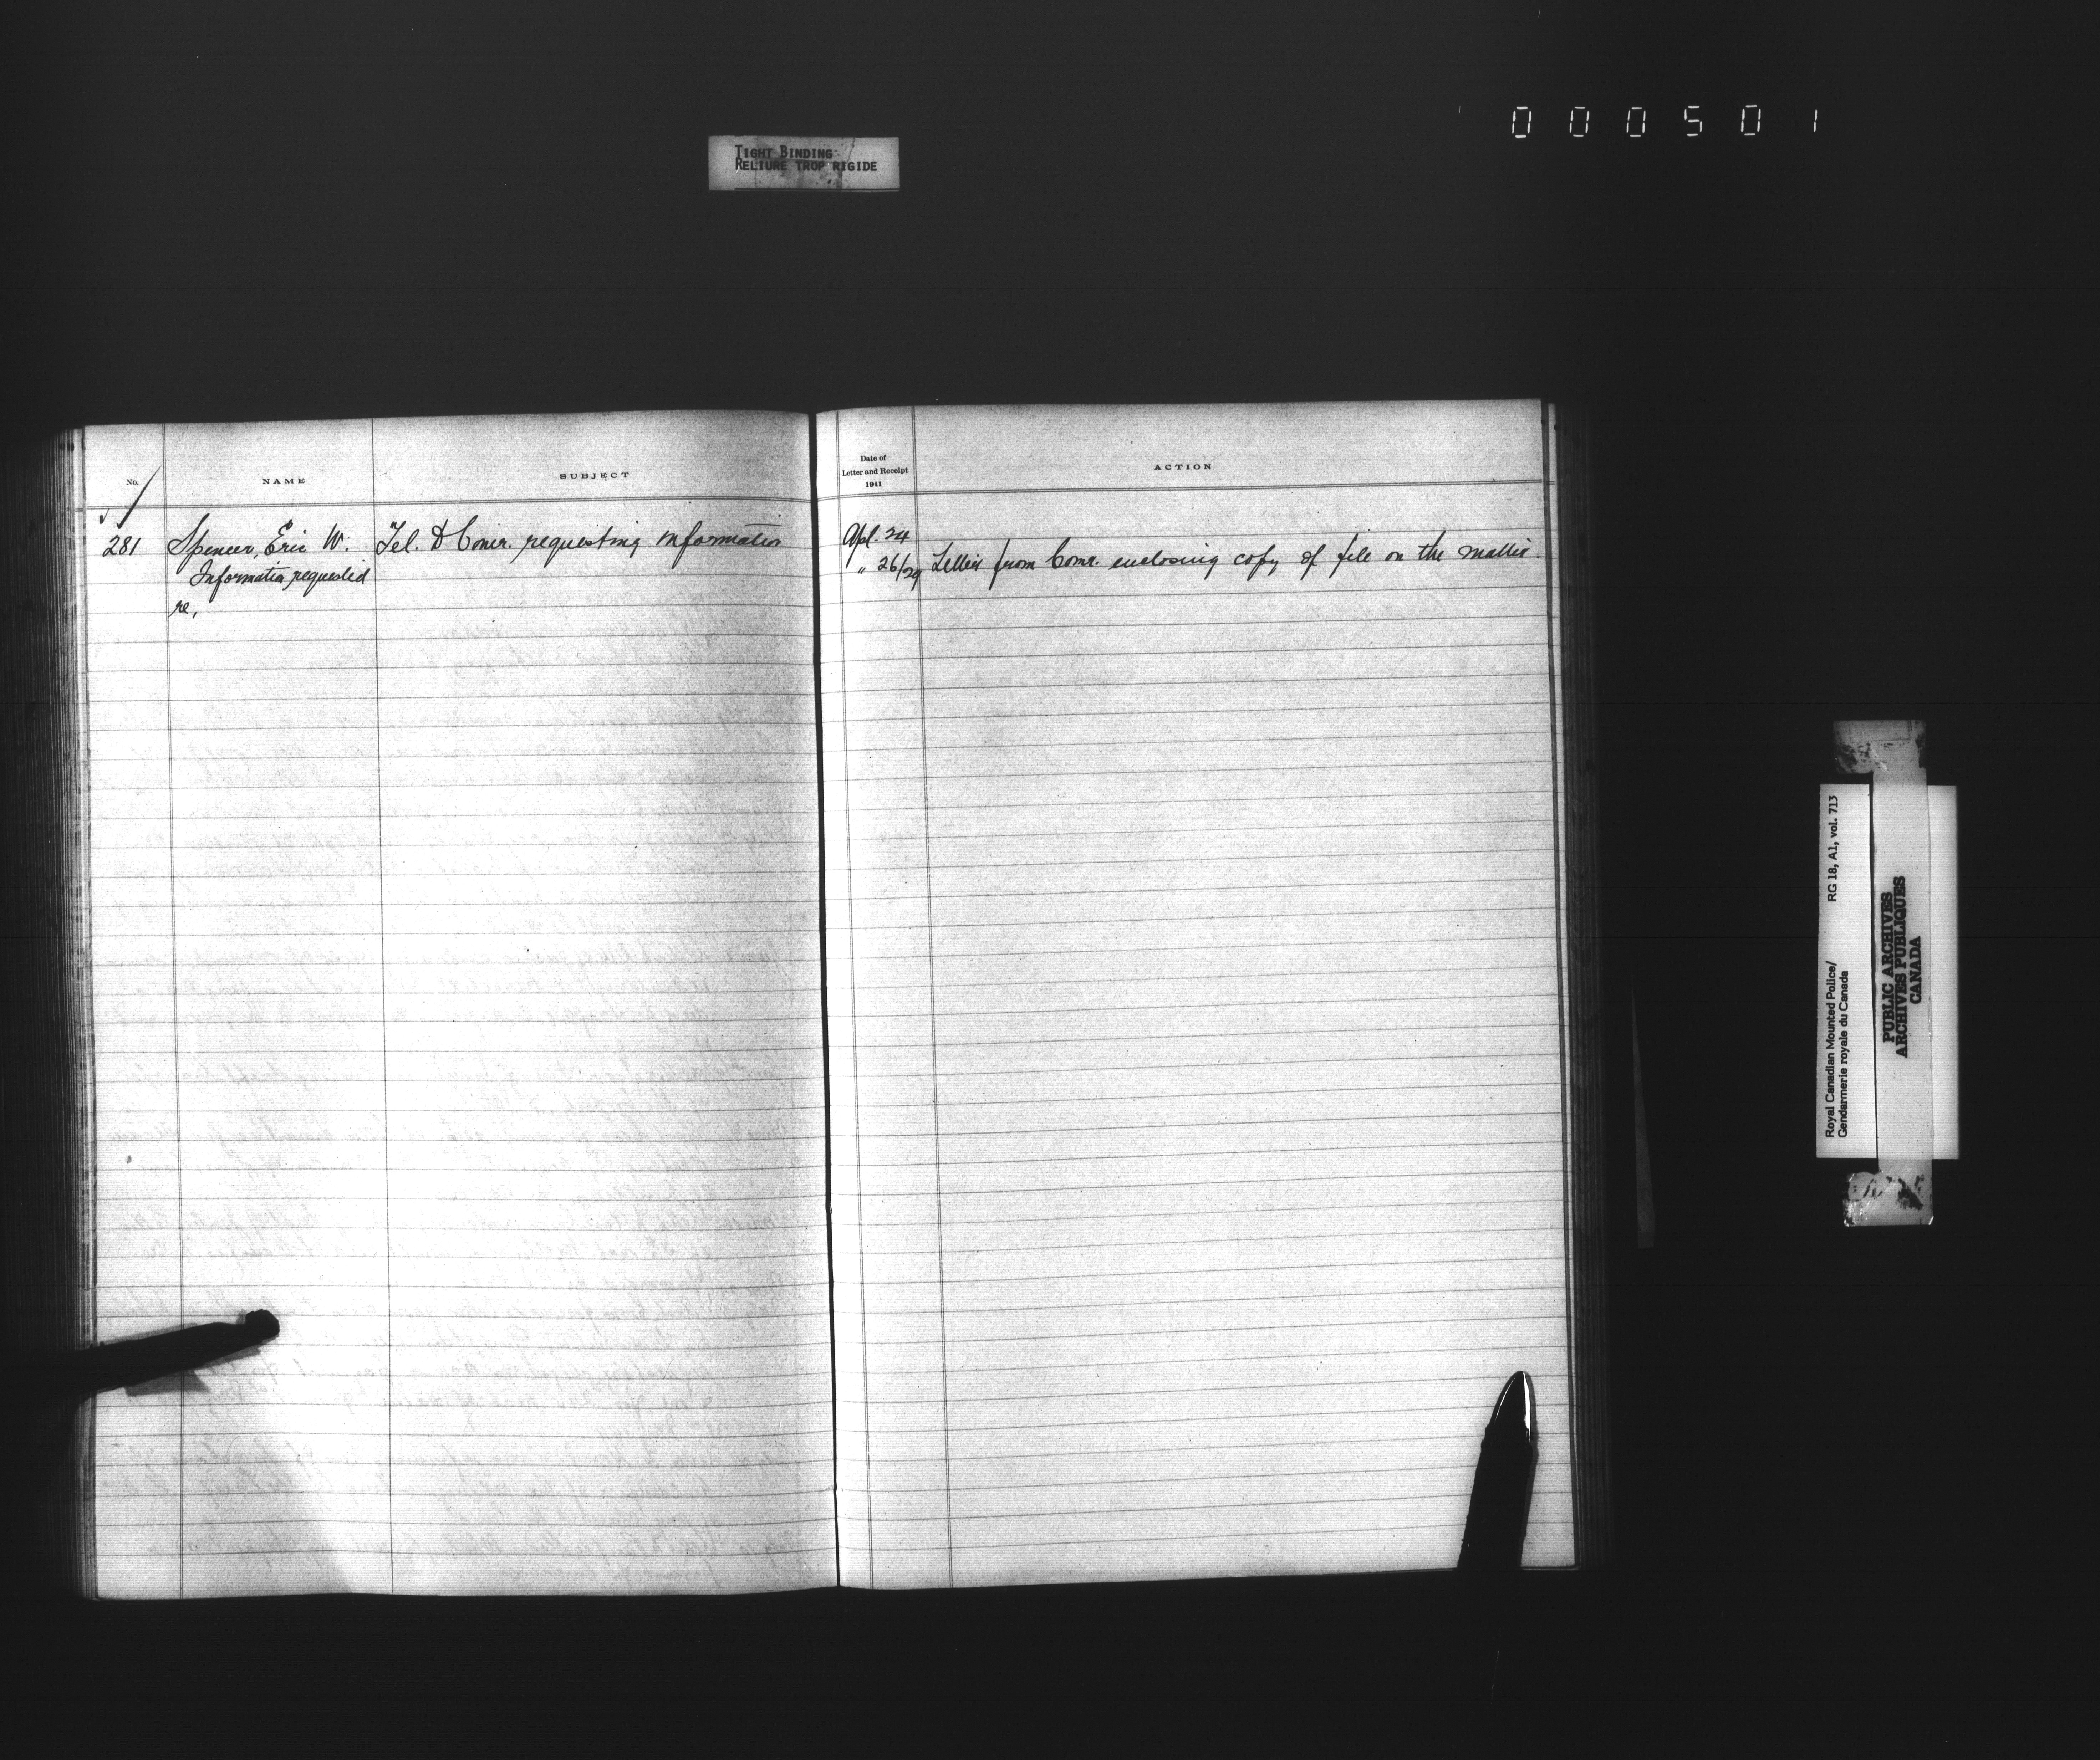 000501
TIGHT BINDING
RELIURE TROP RIGIDE
No.
NAME
SUBJECT
Date of
Letter and Receipt
1911
ACTION
281
Spencer, Eric W.
Information requested
re,
Tel. to Comr. requesting information
Apl. 24
" 26/29 Letter from Comr. enclosing copy of file on the matter.
Royal Canadian Mounted Police/
Gendarmerie royale du Canada
RG 18, A1, vol. 713
PUBLIC ARCHIVES
ARCHIVES PUBLIQUES
CANADA